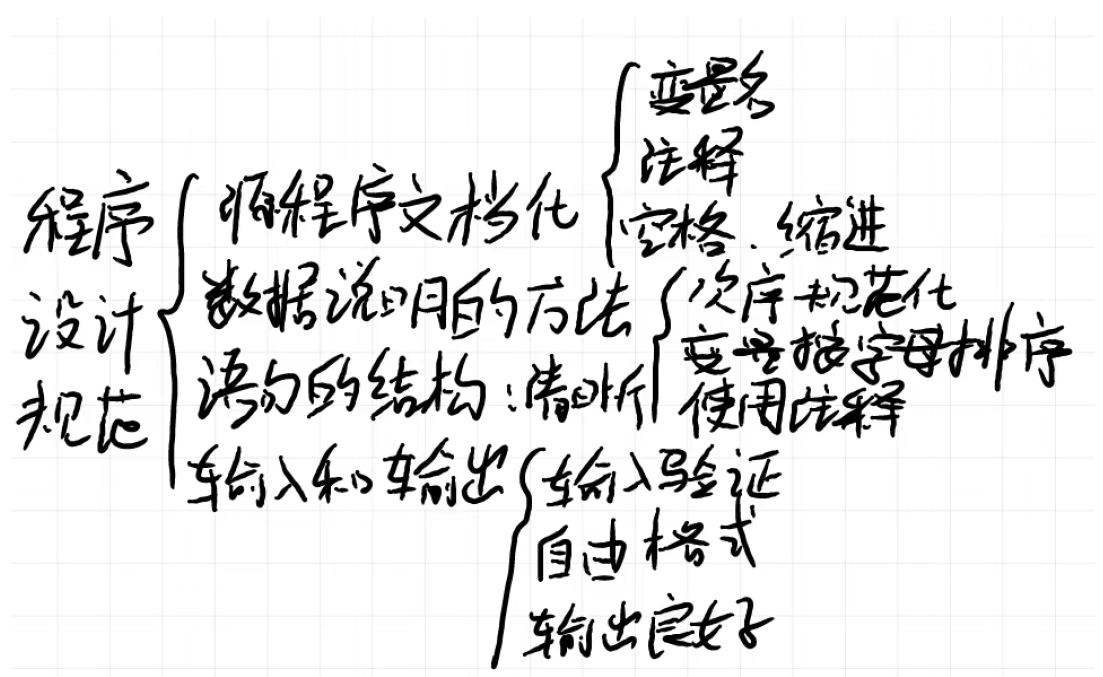 程序
设计
规范
源程序文档化
变量名
注释
空格.缩进
数据说明的方法
次序规范化
变量按字母排序
使用注释
语句的结构:清晰
输入和输出
输入验证
自由格式
输出良好